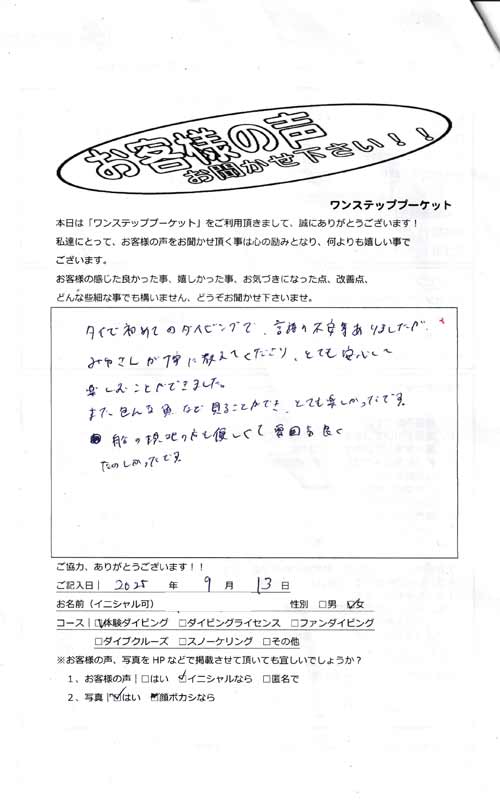 お客様の声
お聞かせ下さい！！
ワンステッププーケット
本日は「ワンステッププーケット」をご利用頂きまして、誠にありがとうございます！
私達にとって、お客様の声をお聞かせ頂く事は心の励みとなり、何よりも嬉しい事で
ございます。
お客様の感じた良かった事、嬉しかった事、お気づきになった点、改善点、
どんな些細な事でも構いません、どうぞお聞かせ下さいませ。
タイで初めてのダイビングで、言語の不安等ありましたが、
みやさんが丁寧に教えてくださり、とても安心して
楽しむことができました。
また色んな魚など見ることができ、とても楽しかったです
船の現地の方も優しくて雰囲気良く
たのしかったです
ご協力、ありがとうございます！！
ご記入日| 2025 年 9 月 13 日
お名前（イニシャル可） 性別 □男 ☑女
コース|☑体験ダイビング □ダイビングライセンス □ファンダイビング
□ダイブクルーズ □スノーケリング □その他
※お客様の声、写真をHPなどで掲載させて頂いても宜しいでしょうか？
1、お客様の声|□はい ☑イニシャルなら □匿名で
2、写真|☑はい ☑顔ボカシなら